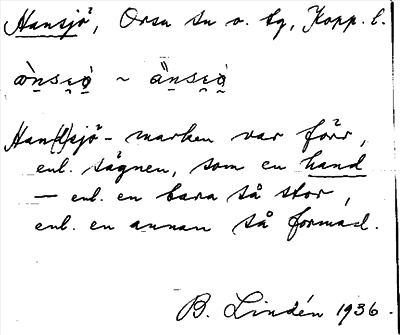 Hansjö, Orsa sn o. tg, Kopp. l.
ànsɛ̣ọ̀ ~ ä̀nsɛ̣ọ̀
Han(d)sjö-marken var förr,
enl. sägnen, som en hand
— enl. en bara så stor,
enl. en annan så formad.
B. Lindén 1936.